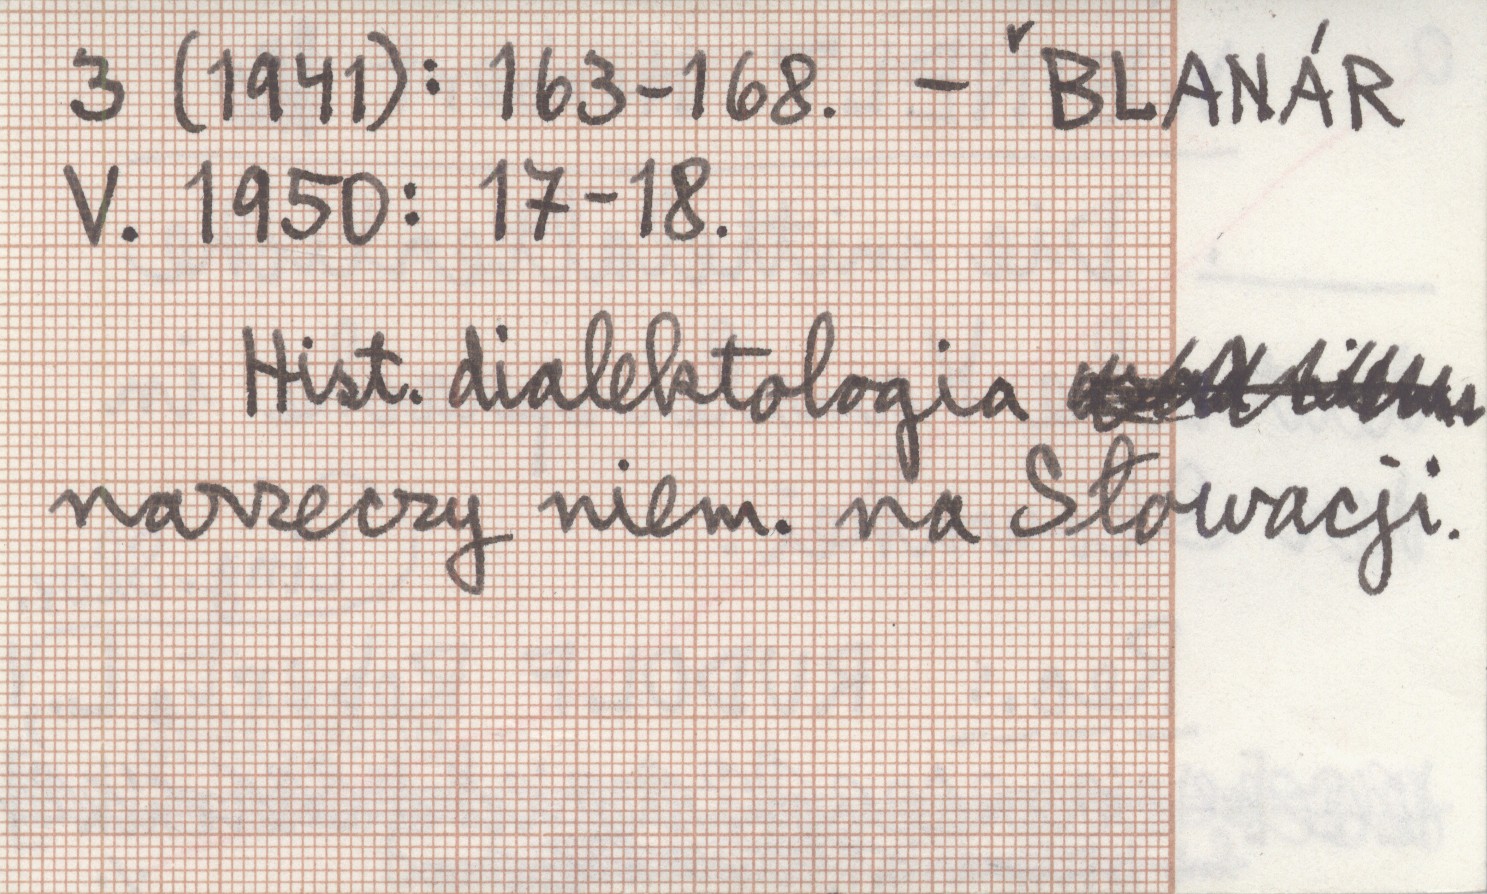 3 (1941): 163-168. - ˇBLANÁR
V. 1950: 17-18.
Hist. dialektologia
narzeczy niem. na Słowacji.